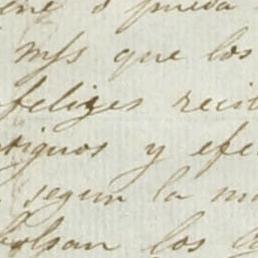 ó pueda
mſs que los
felizes reci
y efe
segun la
bolsan los